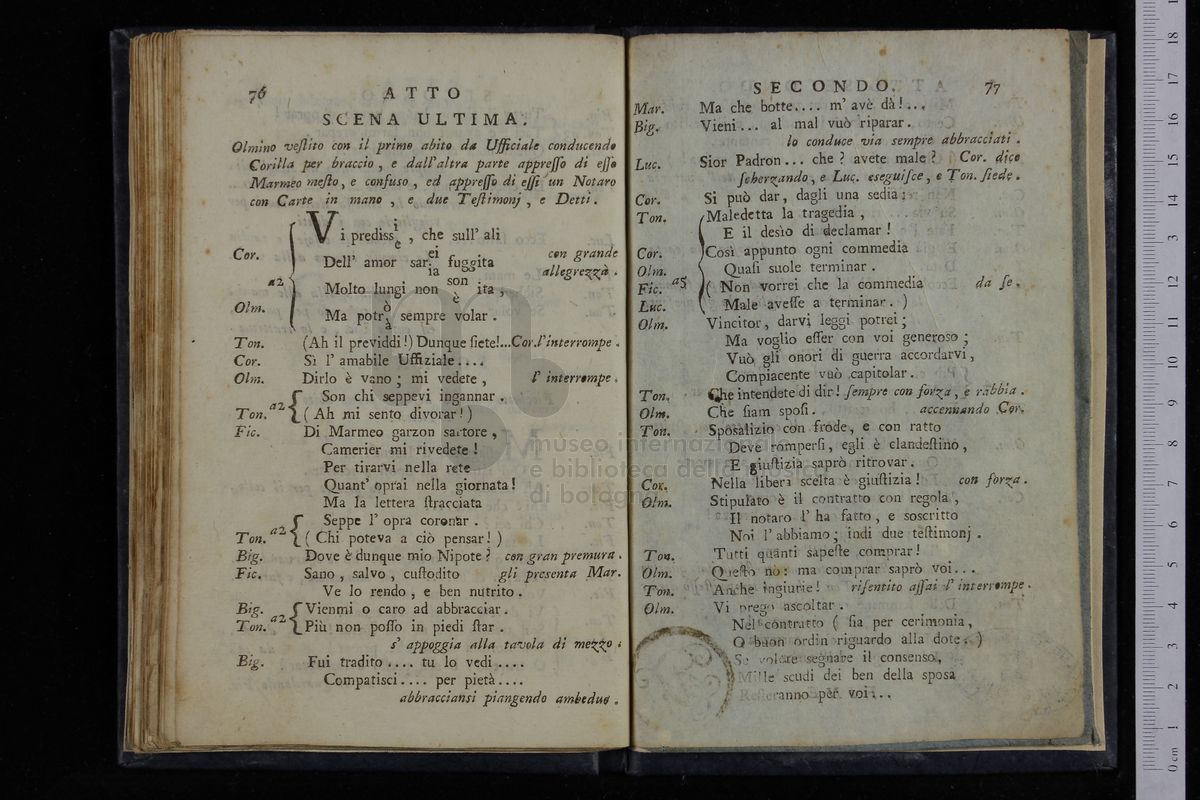 76 ATTO
SCENA ULTIMA.
Olmino veſtito con il primo abito da Uſſiciale conducendo
Corilla per braccio, e dall'altra parte appreſſo di eſſo
Marmeo meſto, e confuso, ed appreſſo di eſſi un Notaro
con Carte in mano, e due Teſtimonj, e Detti.
Vi prediss i/e, che sull' ali
Cor. Dell' amor sar ei/ia fuggita con grande
allegrezza.
a2 Molto lungi non son/è ita,
Olm. Ma potr ò/à sempre volar.
Ton. (Ah il previddi!) Dunque ſiete!...Cor.l'interrompe.
Cor. Sì l' amabile Uffiziale....
Olm. Dirlo è vano; mi vedete, l' interrompe.
Son chi seppevi ingannar.
Ton. a2 (Ah mi sento divorar!)
Fic. Di Marmeo garzon sartore,
Camerier mi rivedete!
Per tirarvi nella rete
Quant' oprai nella giornata!
Ma la lettera ſtracciata
Seppe l' opra coronar.
Ton. a2 (Chi poteva a ciò pensar!)
Big. Dove è dunque mio Nipote? con gran premura.
Fic. Sano, salvo, cuſtodito gli presenta Mar.
Ve lo rendo, e ben nutrito.
Big. Vienmi o caro ad abbracciar.
Ton. a2 Più non poſſo in piedi ſtar.
s' appoggia alla tavola di mezzo.
Big. Fui tradito.... tu lo vedi....
Compatisci.... per pietà....
abbracciansi piangendo ambedue.
SECONDO. 77
Mar. Ma che botte.... m' avè dà!...
Big. Vieni... al mal vuò riparar.
lo conduce via sempre abbracciati.
Luc. Sior Padron... che? avete male? Cor. dice
ſcherzando, e Luc. eseguiſce, e Ton. ſiede.
Cor. Si può dar, dagli una sedia;
Ton. Maledetta la tragedia,
E il desìo di declamar!
Cor. Così appunto ogni commedia
Olm. Quaſi suole terminar.
Fic. a5 (Non vorrei che la commedia da ſe.
Luc. Male aveſſe a terminar.)
Olm. Vincitor, darvi leggi potrei;
Ma voglio eſſer con voi generoso;
Vuò gli onori di guerra accordarvi,
Compiacente vuò capitolar.
Ton. Che intendete di dir! ſempre con forza, e rabbia.
Olm. Che ſiam sposi. accennando Cor.
Ton. Sposalizio con frode, e con ratto
Deve romperſi, egli è clandeſtino,
E giuſtizia saprò ritrovar.
Cor. Nella libera scelta è giuſtizia! con forza.
Olm. Stipulato è il contratto con regola,
Il notaro l' ha fatto, e soscritto
Noi l' abbiamo; indi due teſtimonj.
Ton. Tutti quanti sapeſte comprar!
Olm. Queſto nò: ma comprar saprò voi...
Ton. Anche ingiurie! riſentito aſſai l' interrompe.
Olm. Vi prego ascoltar.
Nel contratto (ſia per cerimonia,
O buon ordin riguardo alla dote.)
Se volete segnare il consenso,
Mille scudi dei ben della sposa
Reſteranno per voi...
museo internazionale
e biblioteca della musica
di bologna